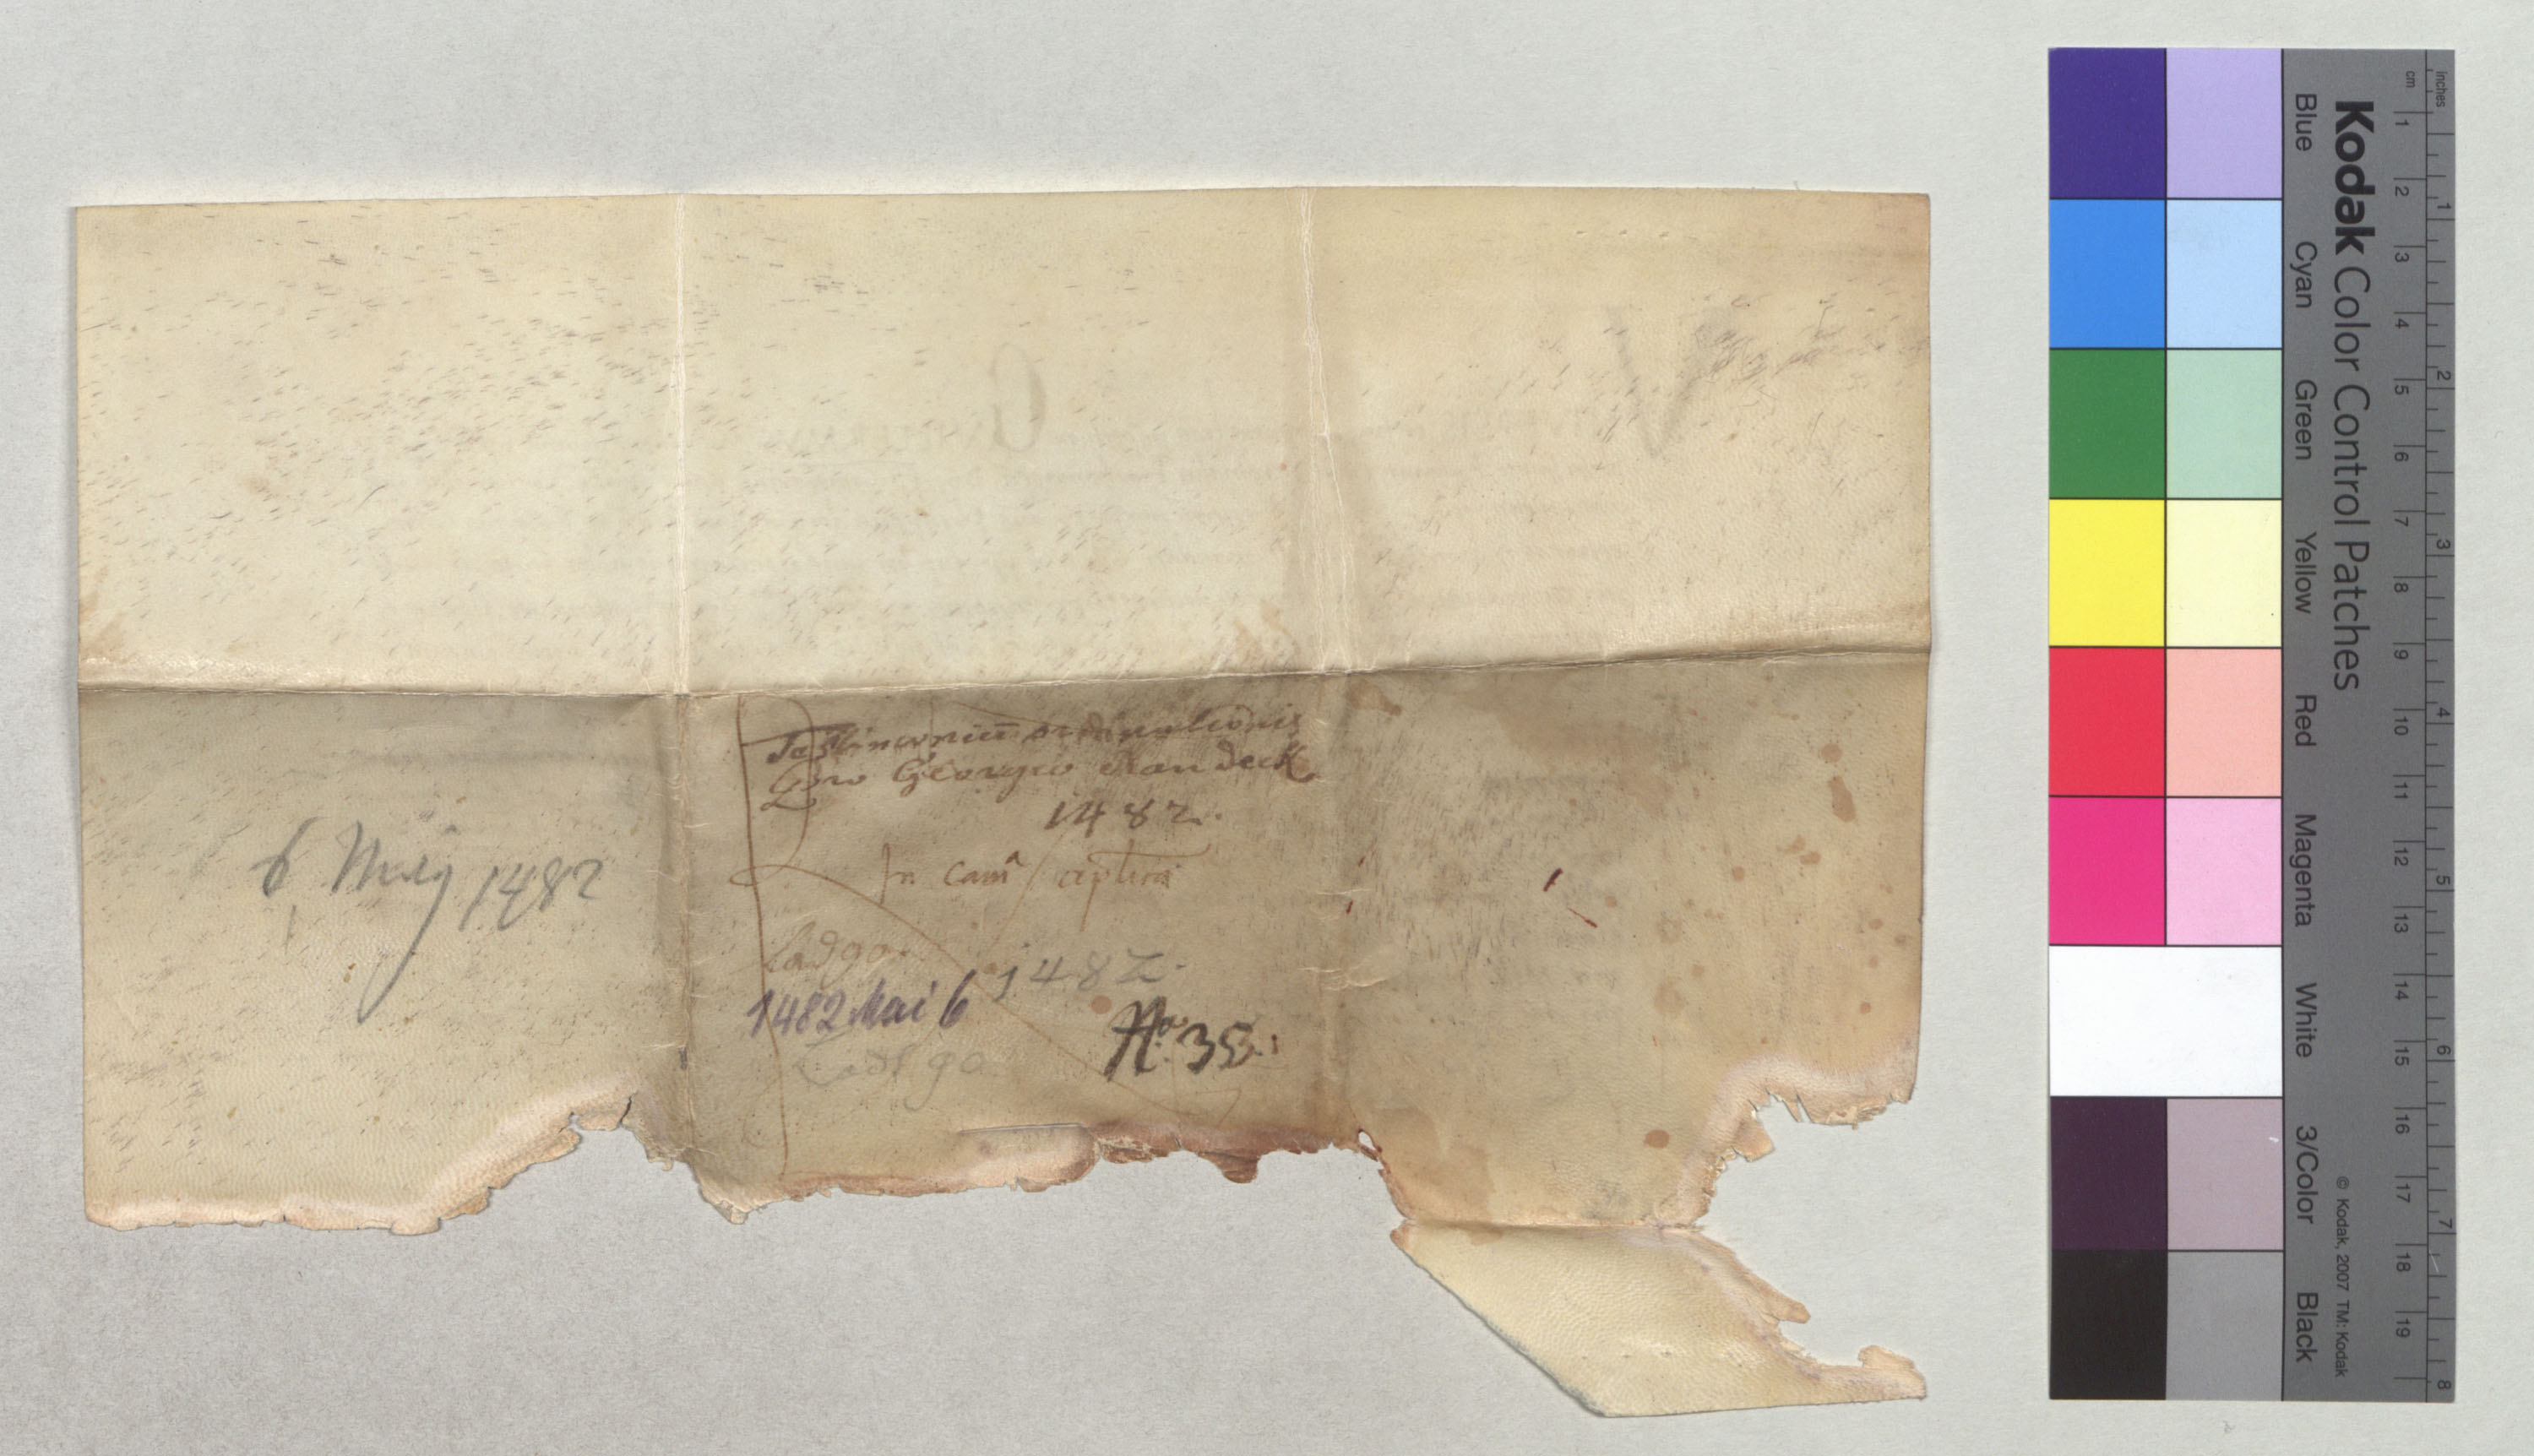 Testimoniū ordinationis
pro Georgio Randeck
1482.
In camᵃ aplica
6 Maij 1482
1482.
1482 Mai 6
Nº. 35.
Kodak Color Control Patches
Blue Cyan Green Yellow Red Magenta White 3/Color Black
© Kodak, 2007 TM: Kodak
cm 1 2 3 4 5 6 7 8 9 10 11 12 13 14 15 16 17 18 19
inches 1 2 3 4 5 6 7 8